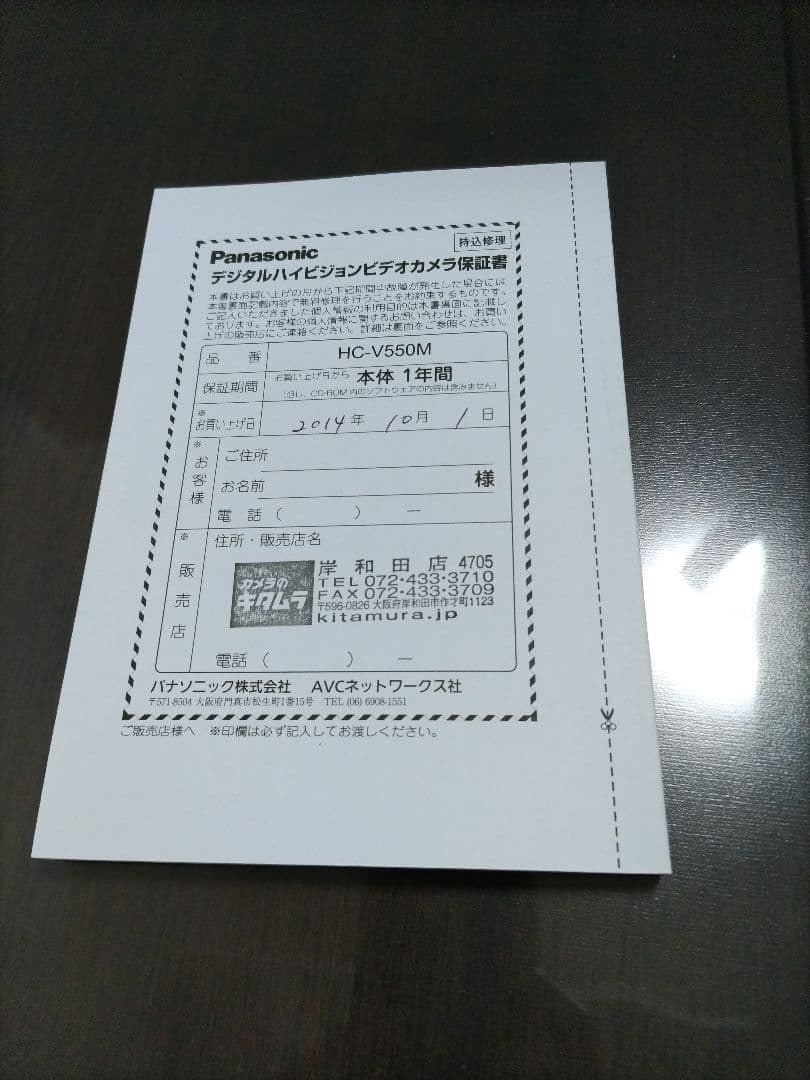 Panasonic
持込修理
デジタルハイビジョンビデオカメラ保証書
本書はお買い上げの日から下記期間中故障が発生した場合には
本書裏面記載内容で無料修理を行うことをお約束するものです。
ご記入いただきました個人情報の利用目的は本書裏面に記載し
ております。お客様の個人情報に関するお問い合わせは、お買い
上げの販売店にご連絡ください。詳細は裏面をご参照ください。
品 番 HC-V550M
保証期間 お買い上げ日から 本体 1年間
(但し、CD-ROM内のソフトウェアの内容は含みません)
※お買い上げ日 2014年 10月 1日
※お客様
ご住所
お名前 様
電話( ) ー
※販売店
住所・販売店名
カメラのキタムラ
岸和田店 4705
TEL 072・433・3710
FAX 072・433・3709
〒596-0826 大阪府岸和田市作才町1123
kitamura.jp
電話( ) ー
パナソニック株式会社 AVCネットワークス社
〒571-8504 大阪府門真市松生町1番15号 TEL (06) 6908-1551
ご販売店様へ ※印欄は必ず記入してお渡しください。